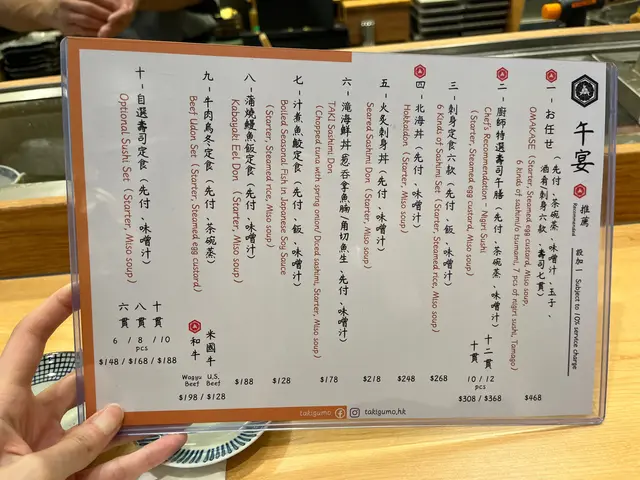 午宴
推薦
Recommended
設加一 Subject to 10% service charge
一、お任せ (先付、茶碗蒸、味噌汁、玉子、
酒肴/刺身六款、壽司七貫)
OMAKASE (Starter, Steamed egg custard, Miso soup,
6 kinds of sashimi/o tsumami, 7 pcs of nigiri sushi, Tamago)
$468
二、廚師特選壽司午膳 (先付、茶碗蒸、味噌汁)
Chef's Recommendation - Nigiri Sushi
(Starter, Steamed egg custard, Miso soup)
十貫 十二貫
10 / 12
pcs
$308 / $368
三、刺身定食六款 (先付、飯、味噌汁)
6 Kinds of Sashimi Set (Starter, Steamed rice, Miso soup)
$268
四、北海丼 (先付、味噌汁)
Hokkaidon (Starter, Miso soup)
$248
五、火炙刺身丼 (先付、味噌汁)
Seared Sashimi Don (Starter, Miso soup)
$218
六、滝海鮮丼 葱吞拿魚腩/角切魚生、先付、味噌汁)
TAKI Sashimi Don
(Chopped tuna with spring onion/ Diced sashimi, Starter, Miso soup)
$178
七、汁煮魚鮫定食 (先付、飯、味噌汁)
Boiled Seasonal Fish in Japanese Soy Sauce
(Starter, Steamed rice, Miso soup)
$128
八、蒲燒鰻魚飯定食 (先付、味噌汁)
Kabayaki Eel Don (Starter, Miso soup)
$188
九、牛肉烏冬定食 (先付、茶碗蒸)
Beef Udon Set (Starter, Steamed egg custard)
和牛 米國牛
Wagyu Beef U.S. Beef
$198 / $128
十、自選壽司定食 (先付、味噌汁)
Optional Sushi Set (Starter, Miso soup)
六貫 八貫 十貫
6 / 8 / 10
pcs
$148 / $168 / $188
takigumo takigumo.hk